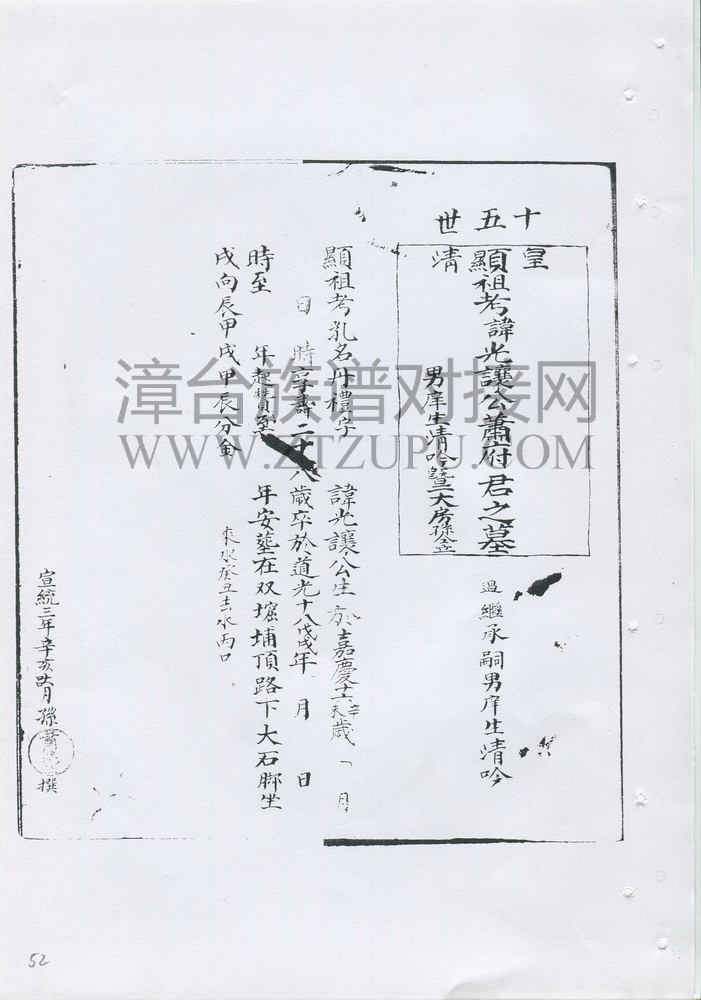 十五世
皇清
顯祖考諱光讓公蕭府君之墓
男庠生清吟暨大房孫仝
過繼承嗣男庠生清吟
顯祖考乳名丹禮字 諱光讓公生於嘉慶十六辛未歲 月
日 時享壽二十八歲卒於道光十八戊戌年 月 日
時至 年起 至 年安塟在双堀埔頂路下大石脚坐
戌向辰甲戌甲辰分金
來水癸丑去水丙口
宣統三年辛亥 月 孫 撰
漳台族谱对接网
WWW.ZTZUPU.COM
52